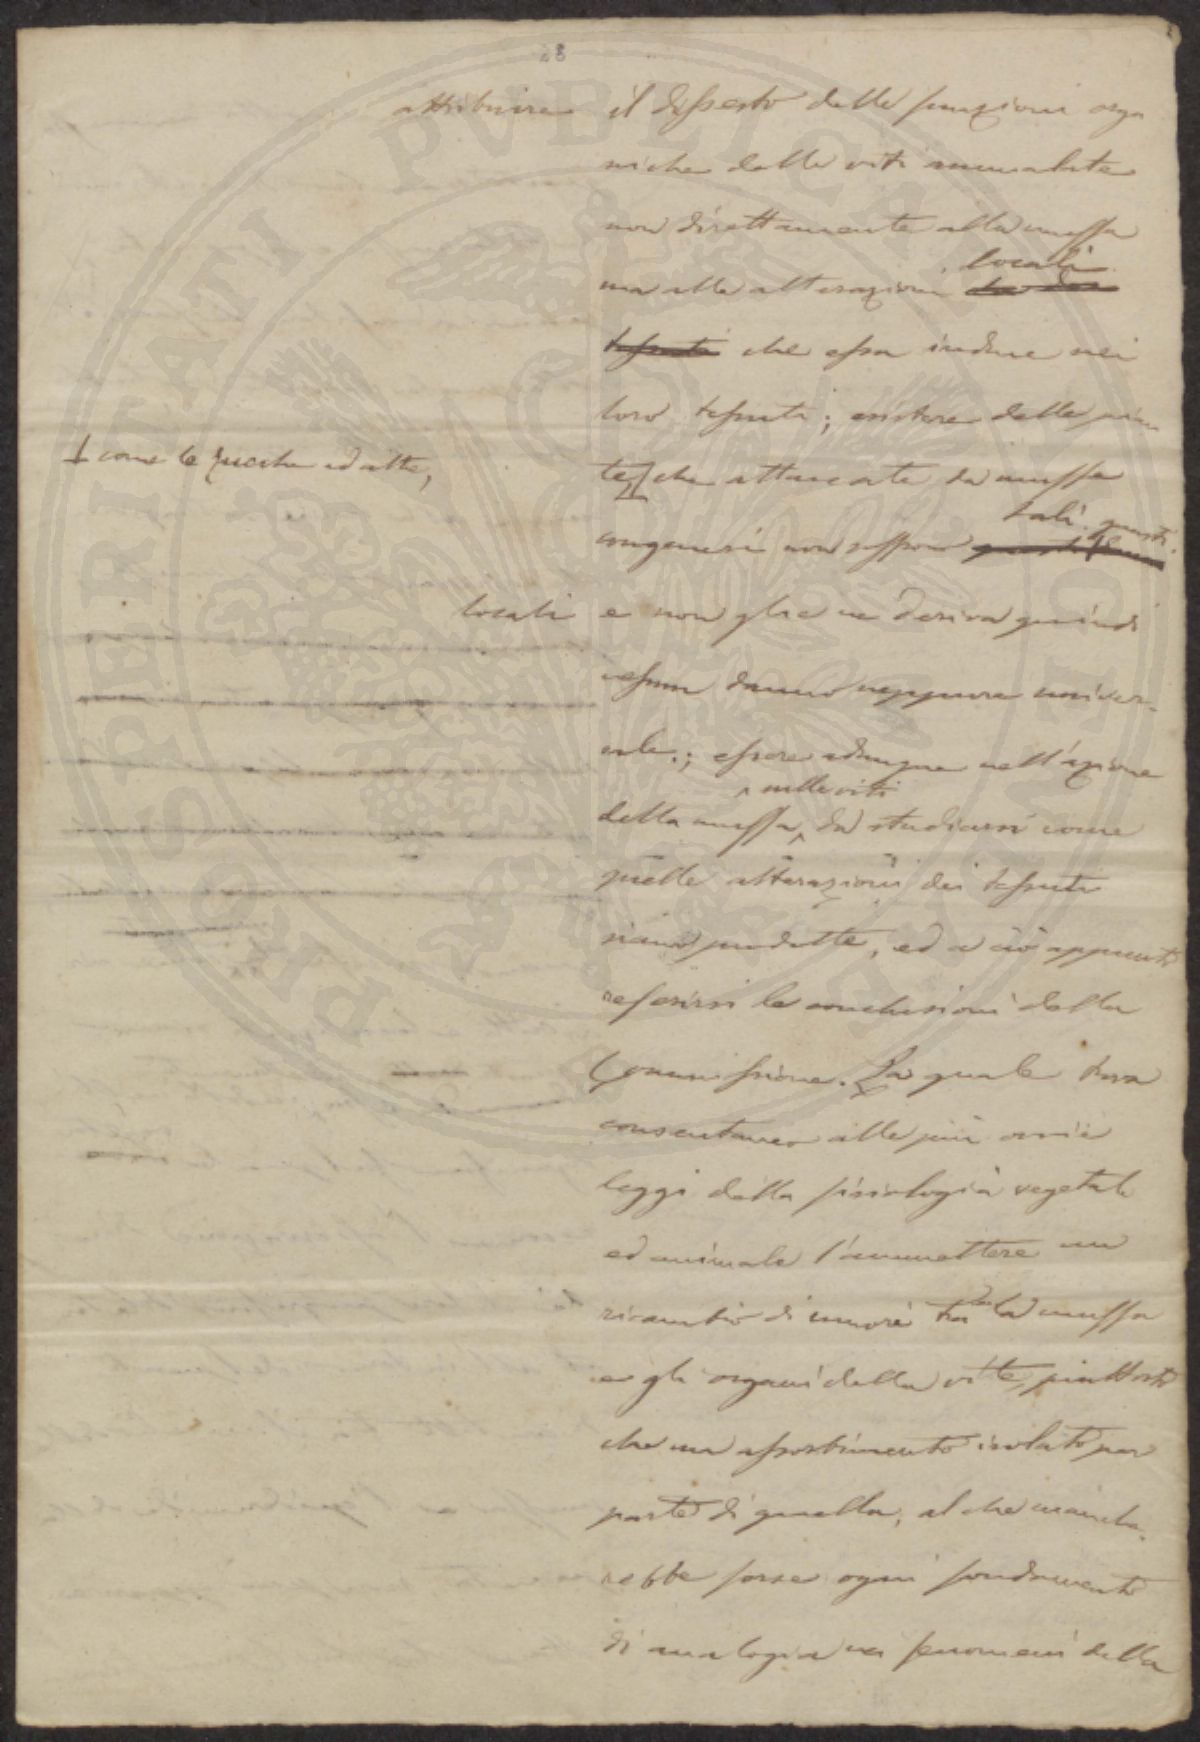 attribuire il dissesto delle funzioni orga
niche delle viti ammalate
non direttamente alla muffa
locali
ma alle alterazioni
tessuti che essa induce nei
loro tessuti; esistere delle pian
te che attaccate da muffe
⊥ come le zucche ed altre,
tali guasti
congeneri non soffrono questi
locali e non glie ne deriva quindi
nessun danno neppure univer-
sale.; essere adunque nell'azione
nelle viti
della muffa, da studiarsi come
quelle alterazioni dei tessuti
siano prodotte, ed a ciò appunto
riferirsi le conclusioni della
Commissione. La quale trova
consentaneo alle più ovvie
leggi della fisiologia vegetale
ed animale l'ammettere un
ricambio di umori tra la muffa
e gli organi della vite, piuttosto
che un assorbimento isolato per
parte di quella, al che manche-
rebbe forse ogni fondamento
di analogia nei fenomeni della